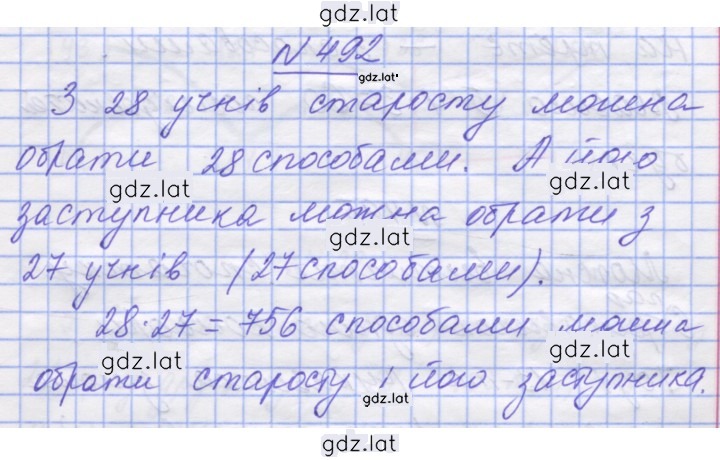 gdz.lat
N 492
gdz.lat
З 28 учнів старосту можна
обрати 28 способами. А його
gdz.lat gdz.lat
заступника можна обрати з
gdz.lat gdz.lat
27 учнів (27 способами).
28·27 = 756 способами можна
gdz.lat gdz.lat
обрати старосту і його заступника.
gdz.lat
gdz.lat